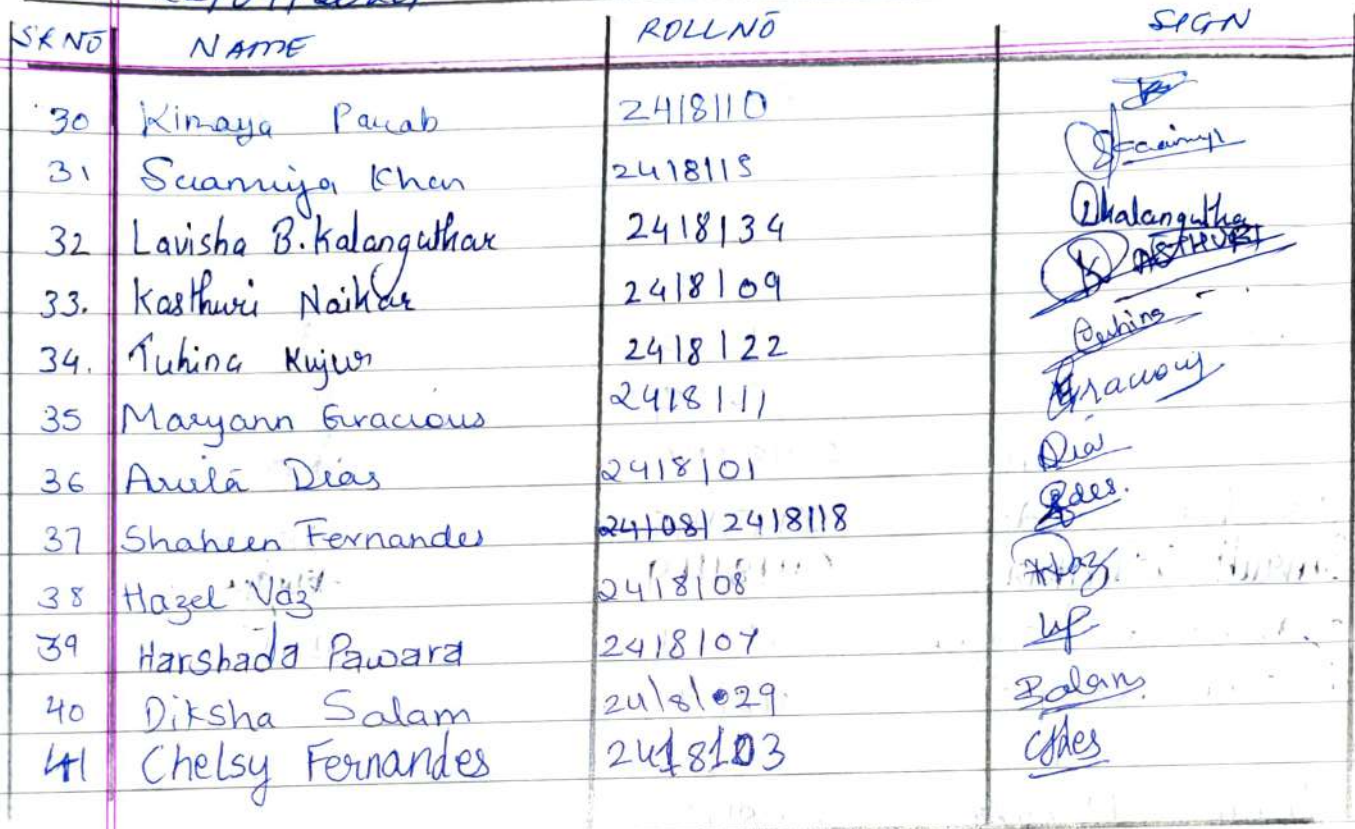 SR NO NAME ROLL NO SIGN
30 Kimaya Parab 2418110
31 Khan 2418115
32 Lavisha B. Kalanguthar 2418134 Lkalangutha
33. Kasthuri Naikar 2418109 KASTHURI
34. Tuhina Kujur 2418122 Tuhina
35 Maryann Gracious 2418111 Gracious
36 Dias 2418101 Dias
37 Shaheen Fernandes 241081 2418118 Sdes.
38 Hazel Vaz 2418108 HVaz
39 Harshada Pawara 2418107
40 Diksha Salam 2418029 Salam
41 Chelsy Fernandes 2418103 Cfdes